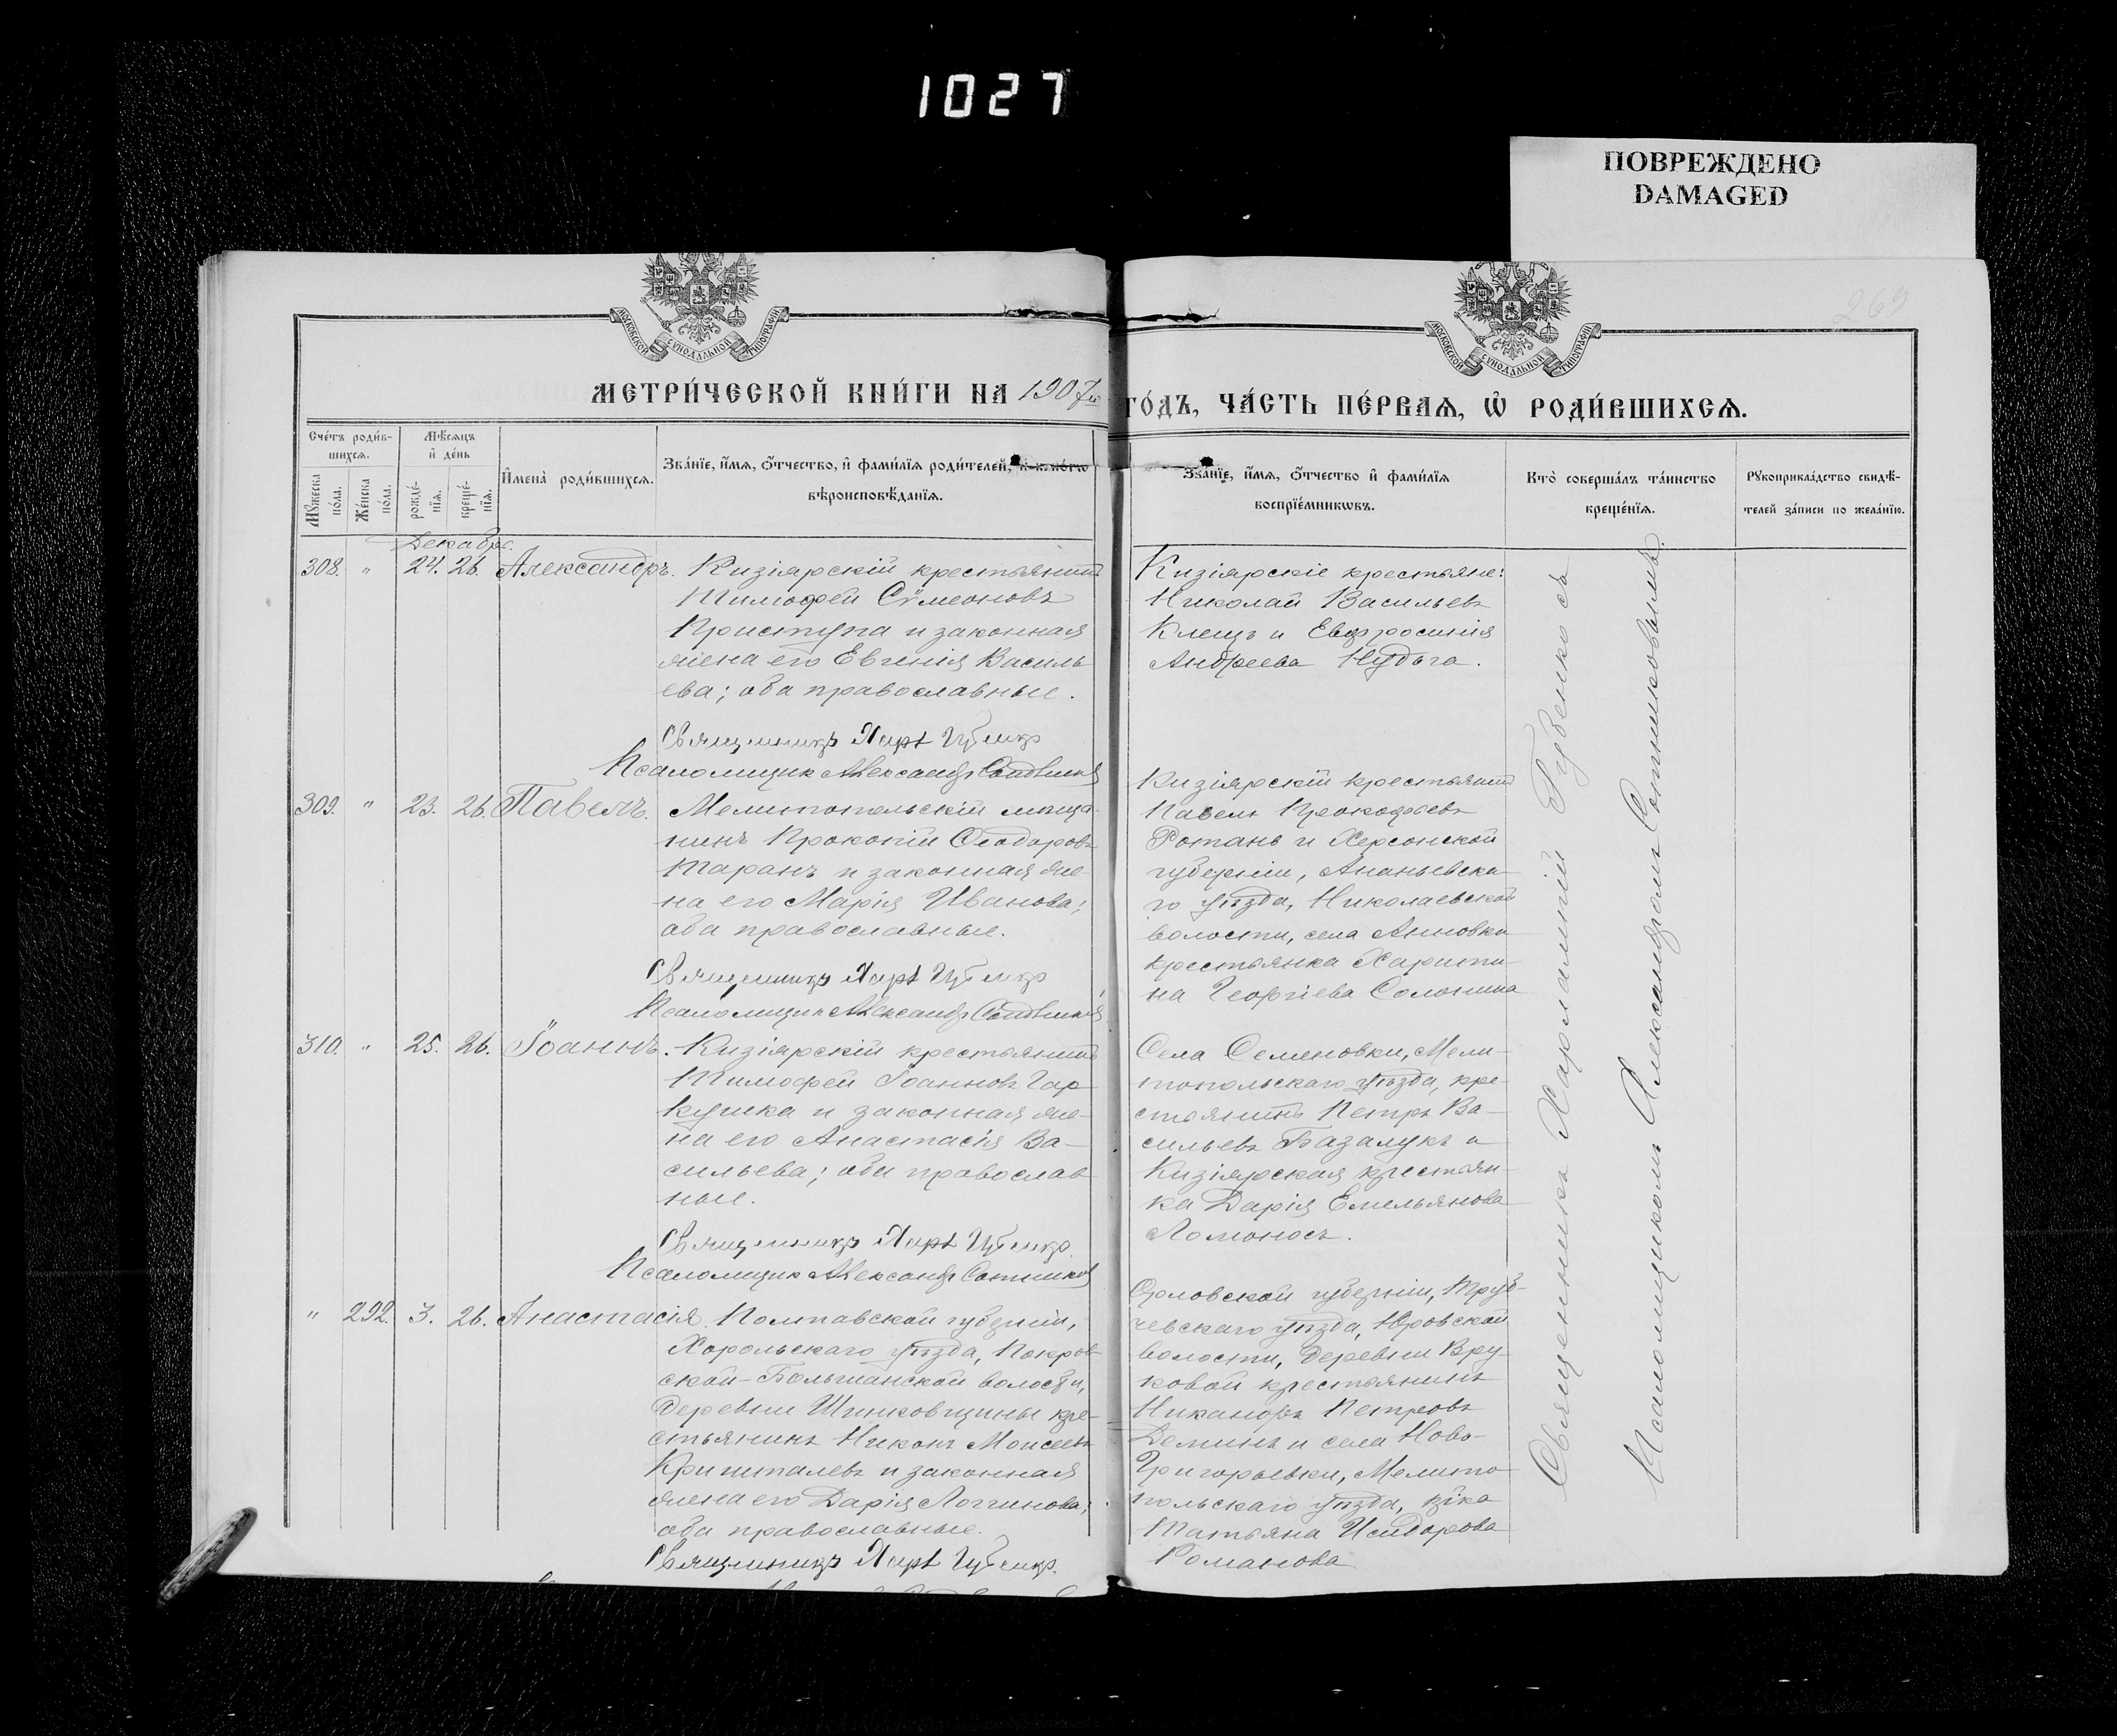 1027
ПОВРЕЖДЕНО
DAMAGED
269
МОСКОВСКОЙ СѴНОДАЛЬНОЙ ТИПОГРАФІИ
МОСКОВСКОЙ СѴНОДАЛЬНОЙ ТИПОГРАФІИ
МЕТРИ́ЧЕСКОЙ КНИ́ГИ НА 1907й
ГО́ДЪ, ЧА́СТЬ ПЕ́РВАѦ, Ѡ҆ РОДИ́ВШИХСѦ.
Сче́тъ роди́в-
шихсѧ.
Мꙋ́жеска по́ла.
Же́нска по́ла.
Мѣ́сѧцъ
и҆ де́нь
рожде́-
нїѧ.
креще́-
нїѧ.
И҆мена̀ роди́вшихсѧ.
Зва́нїе, и҆́мѧ, ѻ҆́тчество, и҆ фами́лїѧ роди́телей, и҆ како́гѡ
вѣроисповѣ́данїѧ.
Зва́нїе, и҆́мѧ, ѻ҆́тчество и҆ фами́лїѧ
воспрїе́мникѡвъ.
Кто̀ соверша́лъ та́инство
креще́нїѧ.
Рꙋкоприкла́дство свидѣ́-
телей за́писи по жела́нїю.
Декабрь.
308. " 24. 26. Александръ. Кизіярскій крестьянинъ
Тимофей Сѵмеоновъ
Приступа и законная
жена его Евгенія Василь
ева; оба православные.
Священникъ Харл Губенко
Псаломщик Александр Сотников
Кизіярскіе крестьяне:
Николай Васильевъ
Клещъ и Евфросинія
Андреева Нудьга.
309. " 23. 26. Павелъ. Мелитопольскій мѣща-
нинъ Прокопій Ѳеодоровъ
Таранъ и законная же-
на его Марія Иванова;
оба православные.
Священникъ Харл Губенко
Псаломщик Александр Сотников
Кизіярскій крестьянинъ
Павелъ Прокофьевъ
Ротань и Херсонской
губерніи, Ананьевска-
го уѣзда, Николаевской
волости, села Анновки
крестьянка Харити-
на Георгіева Солонина
310. " 25. 26. Іоаннъ. Кизіярскій крестьянинъ
Тимофей Іоанновъ Гар
кушка и законная же-
на его Анастасія Ва-
сильева; оба православ
ные.
Священникъ Харл Губенко.
Псаломщик Александр Сотников
Села Семеновки, Мели-
топольскаго уѣзда, кре-
стьянинъ Петръ Ва-
сильевъ Базалукъ и
Кизіярская крестьян-
ка Дарія Емельянова
Ломоносъ.
" 292. 3. 26. Анастасія. Полтавской губерніи,
Хорольскаго уѣзда, Покров
ской-Большанской волости,
деревни Шинковщины кре-
стьянинъ Никонъ Моисеевъ
Кришталевъ и законная
жена его Дарія Логгинова;
оба православные.
Священникъ Харл Губенко.
Орловской губерніи, Труб-
чевскаго уѣзда, Юровской
волости, деревни Вру-
ковой крестьянинъ
Никаноръ Петровъ
Деминъ и села Ново-
Григорьевки, Мелито-
польскаго уѣзда, кр҃ка
Татьяна Исидорова
Романова
Священникъ Харлампій Губенко съ
Псаломщикомъ Александромъ Сотниковымъ.